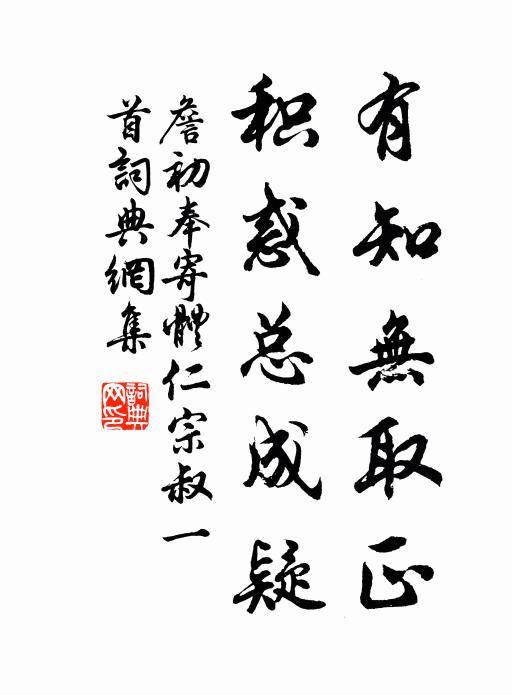 有知無取正
积惑总成疑
詹初奉寄體仁宗叔一
首詞典網集
詞典网印